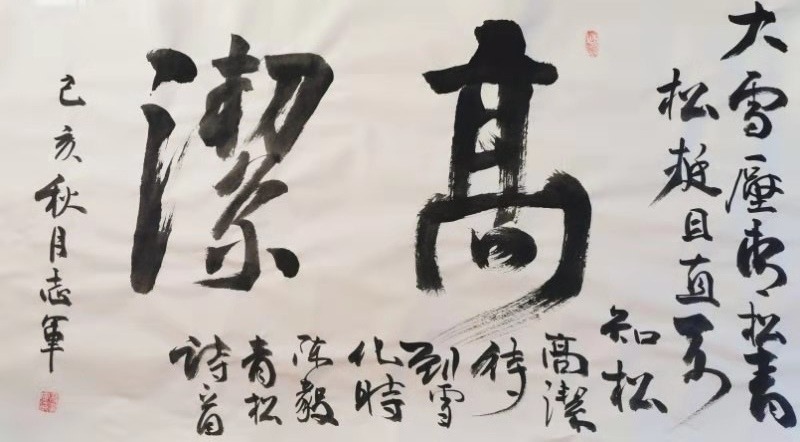 大雪壓青松青
松挺且直要
知松
高潔
高潔
待
到雪
化時
陳毅
青松
詩首
己亥秋月志軍